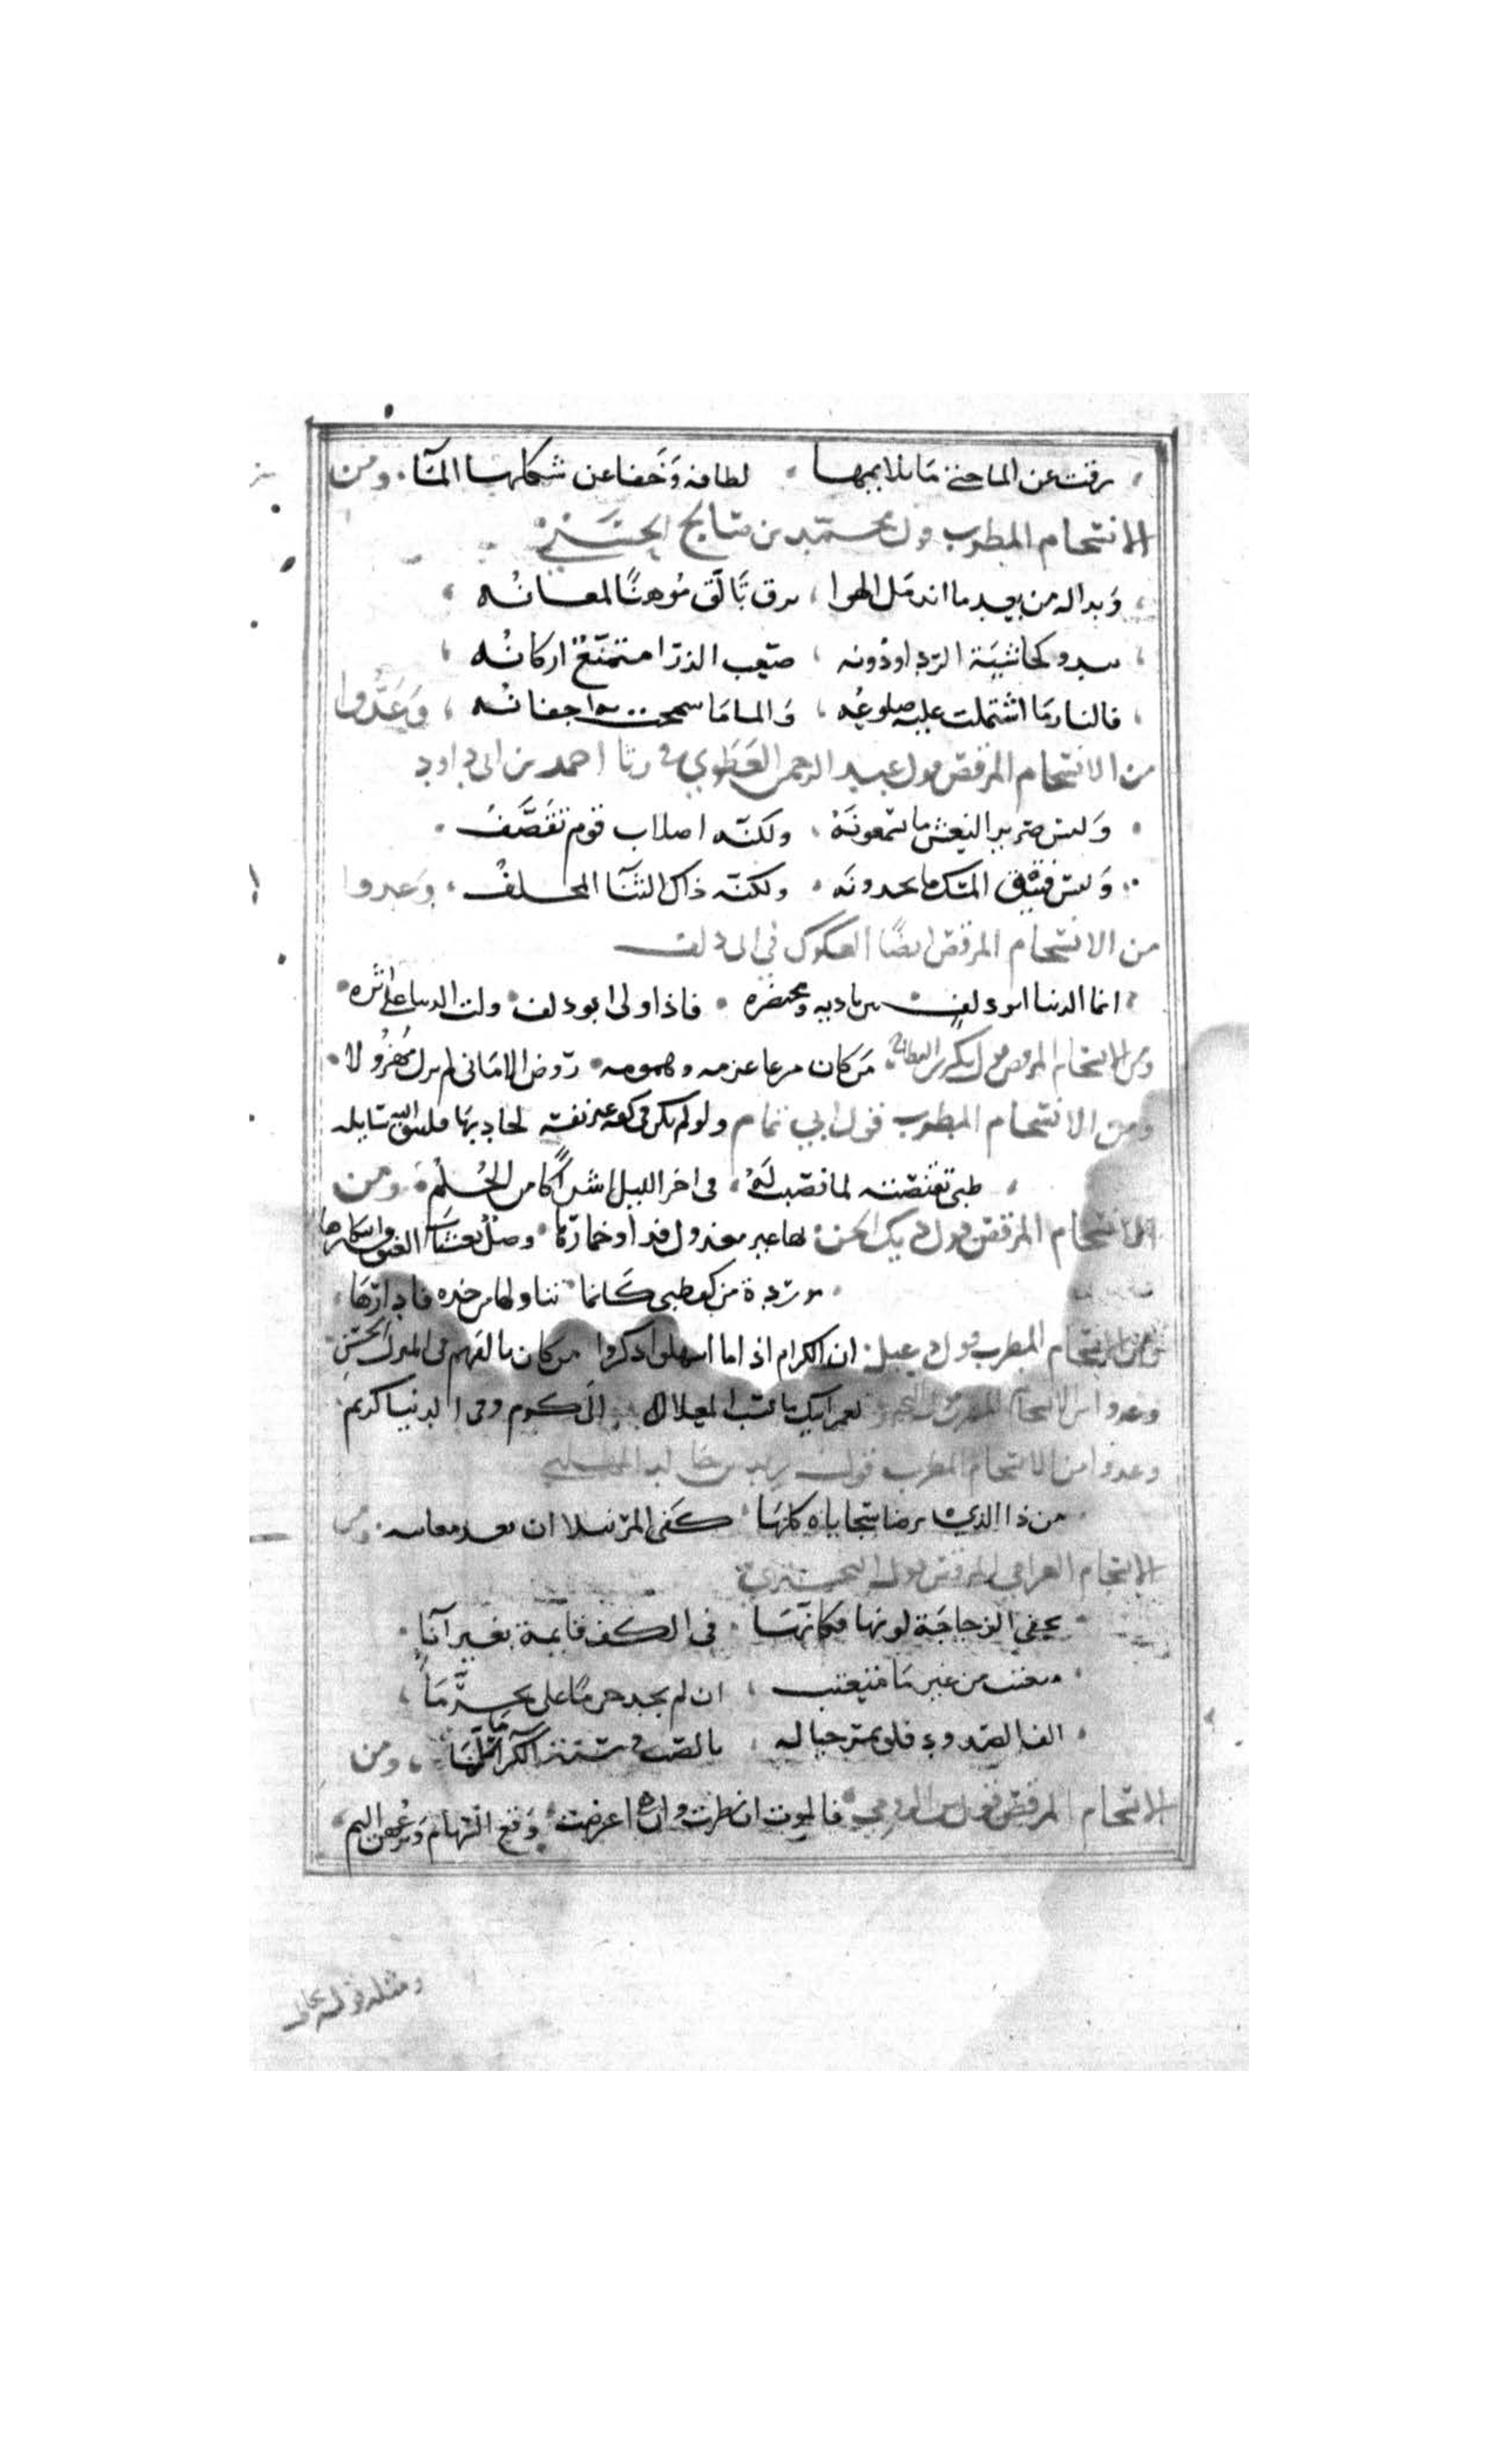 رقت عن الما حتى ما يلايمها لطافة وَجَفا عن شكلها المآ ومن
الانتحام المطرب قول محمد بن صالح الحسَني
وَبدا له من بعد ما اندمل الهوا برق تَالّق مُوهنًا لمعانُه
يبدو كحاشية الردا ودُونه صعب الذرَا متمنّعُ اركانُه
فالنار مَا اشتملت عليه ضلوعُه وَالما مَا سمحت به اجفانُه وَعَدُّوا
من الانتحام المرقص قول عبد الرحمن العَطَوي في رثا احمد بن ابي داود
وَليس صرير النعش ما تسمعونَهْ ولكنّه اصلاب قوم تقصَّفُ
وَليس فتيق المسك ما تجدونَه ولكنّه ذاك الثنآ المخلفُ وَعدوا
من الانتحام المرقص ايضًا العكوك في ابي دلف
انما الدنيا ابو دلف بين باديه ومحتضره فاذا ولى ابو دلف ولت الدنيا على اثره
ومن الانتحام المرقص قول بكر بن النطاح مَن كان مرعا عزمه وهمومه روض الامَاني لم يزل مهزُولا
ومن الانتحام المطرب قول ابي تمام ولو لم يكن في كفه غير نفسه لجاد بهَا فليتق الله سَايله
ظبي تقنصّته لما نصَبت لَهُ في اخر الليل اشراكًا من الحُلُم ومن
الانتحام المرقص قول ديك الجن بها غير معذول فداو خمارَها وصل بعشيات الغبوق ابتكارها
موردة من كف ظبي كَانما تناولها من خده فادارَهَا
ومن الانتحام المطرب قول دعبل ان الكرام اذا ما اسهلوا ذكروا من كان يالفهم في المنزل الخشن
وعدوا من الانتحام لعمر ابيك ما نسب المعلا الى كرم وفي الدنيا كريم
وعدوا من الانتحام المطرب قول يزيد بن خالد المهلبي
من ذا الذي ترضا سَجاياه كلهَا كَفى المرْ نبلا ان تعد معايبه ومن
الانتحام العرامي المرقص قول البحتري
يخفي الزجاجَة لونها فكانهَا في الكف قايمة بغير اناءِ
من غير مَا ان لم يجد جرمًا على تجرَّمَا
الف الصدود فلو يمر خياله بالصب في سنة الكرا مَا سلّمَا ومن
الانتحام المرقص قول ابن الرومي فالموت ان نظرت وان هي اعرضت وَقع السّهام وَنزعُهن اليم
ومثله قوله